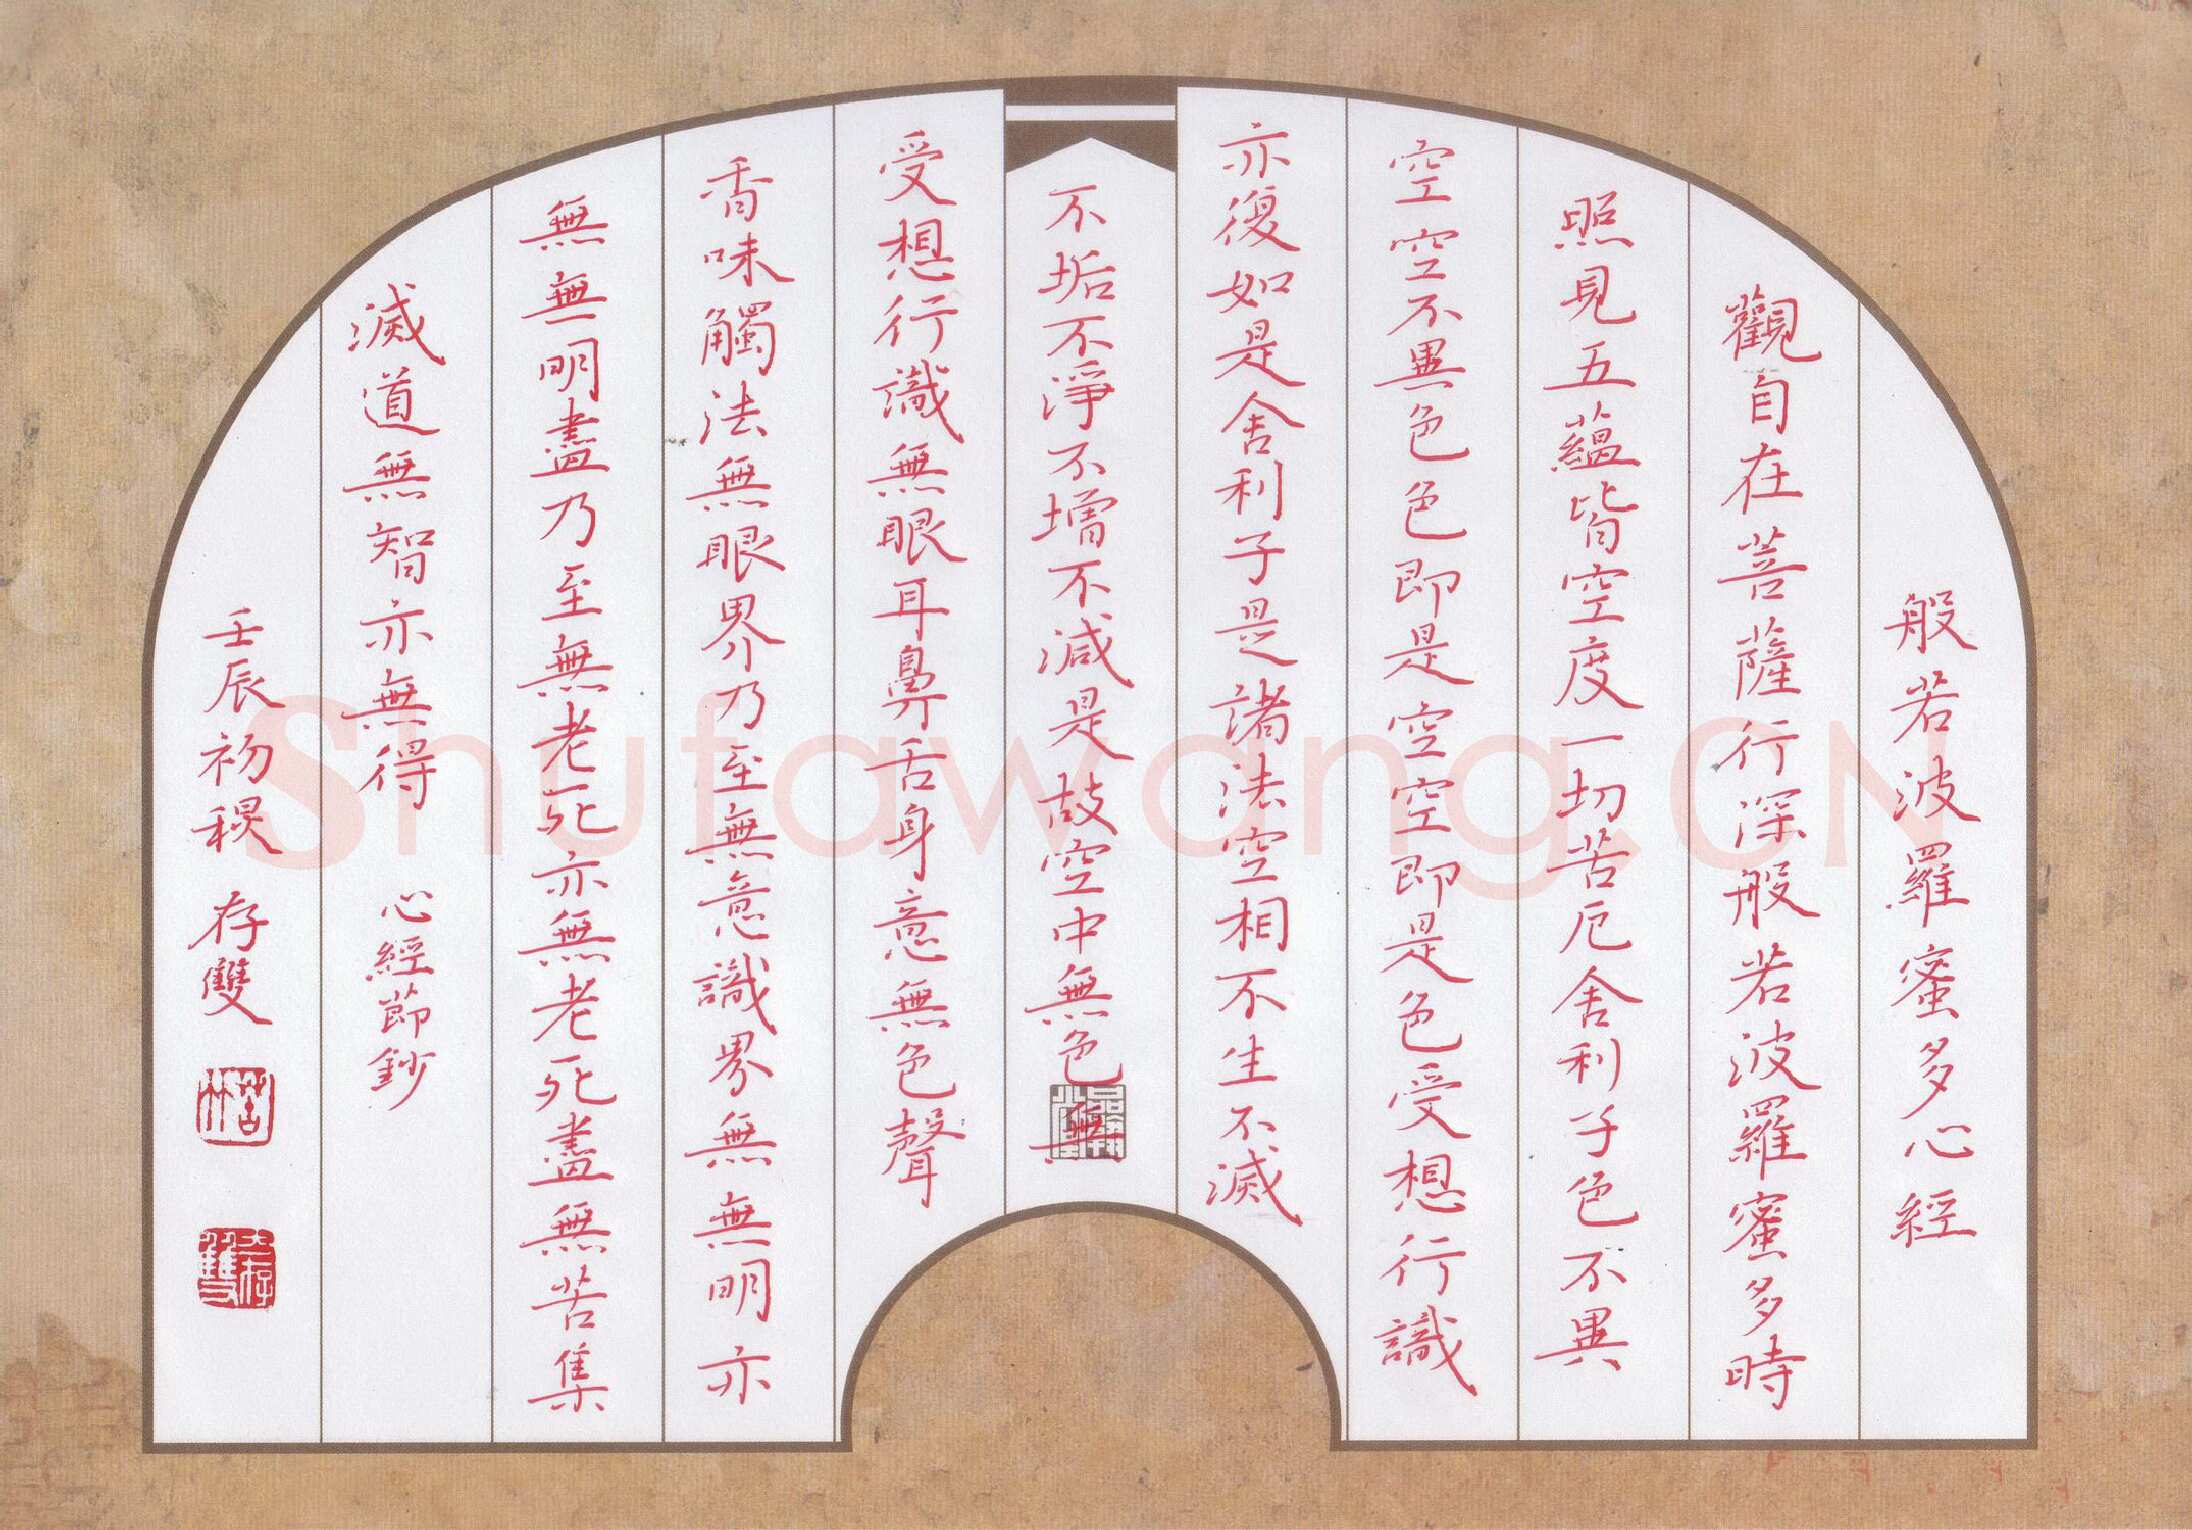 般若波羅蜜多心經
觀自在菩薩行深般若波羅蜜多時
照見五蘊皆空度一切苦厄舍利子色不異
空空不異色色即是空空即是色受想行識
亦復如是舍利子是諸法空相不生不滅
不垢不淨不增不減是故空中無色無
受想行識無眼耳鼻舌身意無色聲
香味觸法無眼界乃至無意識界無無明亦
無無明盡乃至無老死亦無老死盡無苦集
滅道無智亦無得 心經節鈔
壬辰初秋 存雙
Shufawang.CN